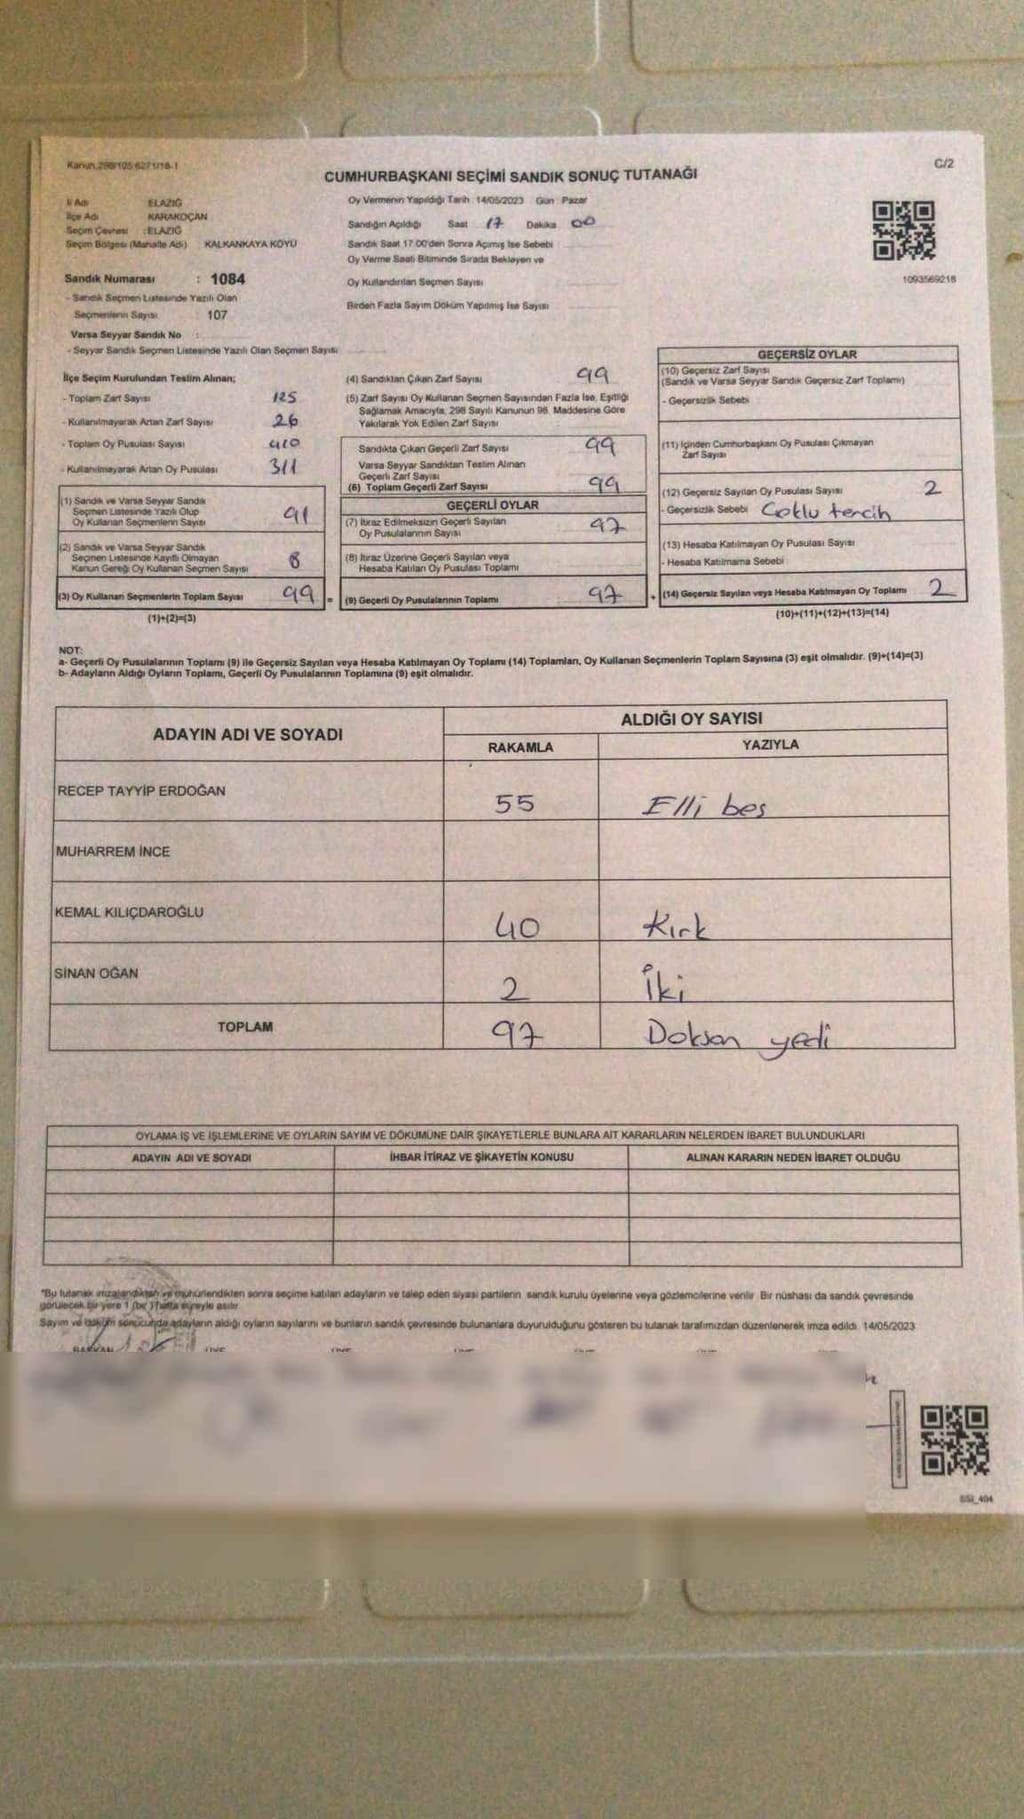 Kanun.298/105 6271/18-1
C/2
CUMHURBAŞKANI SEÇİMİ SANDIK SONUÇ TUTANAĞI
İl Adı ELAZIĞ
İlçe Adı KARAKOÇAN
Seçim Çevresi :ELAZIĞ
Seçim Bölgesi (Mahalle Adı) KALKANKAYA KÖYÜ
Oy Vermenin Yapıldığı Tarih 14/05/2023 Gün Pazar
Sandığın Açıldığı Saat 17 Dakika 00
Sandık Saat 17.00'den Sonra Açılmış İse Sebebi
Oy Verme Saati Bitiminde Sırada Bekleyen ve
Oy Kullandırılan Seçmen Sayısı
Birden Fazla Sayım Döküm Yapılmış İse Sayısı
1093569218
Sandık Numarası : 1084
- Sandık Seçmen Listesinde Yazılı Olan
Seçmenlerin Sayısı 107
Varsa Seyyar Sandık No :
- Seyyar Sandık Seçmen Listesinde Yazılı Olan Seçmen Sayısı
İlçe Seçim Kurulundan Teslim Alınan;
- Toplam Zarf Sayısı 125
- Kullanılmayarak Artan Zarf Sayısı 26
- Toplam Oy Pusulası Sayısı 410
- Kullanılmayarak Artan Oy Pusulası 311
(1) Sandık ve Varsa Seyyar Sandık
Seçmen Listesinde Yazılı Olup
Oy Kullanan Seçmenlerin Sayısı 91
(2) Sandık ve Varsa Seyyar Sandık
Seçmen Listesinde Kayıtlı Olmayan
Kanun Gereği Oy Kullanan Seçmen Sayısı 8
(3) Oy Kullanan Seçmenlerin Toplam Sayısı 99 =
(1)+(2)=(3)
(4) Sandıktan Çıkan Zarf Sayısı 99
(5) Zarf Sayısı Oy Kullanan Seçmen Sayısından Fazla İse, Eşitliği
Sağlamak Amacıyla, 298 Sayılı Kanunun 98. Maddesine Göre
Yakılarak Yok Edilen Zarf Sayısı
Sandıkta Çıkan Geçerli Zarf Sayısı 99
Varsa Seyyar Sandıktan Teslim Alınan
Geçerli Zarf Sayısı
(6) Toplam Geçerli Zarf Sayısı 99
GEÇERLİ OYLAR
(7) İtiraz Edilmeksizin Geçerli Sayılan
Oy Pusulalarının Sayısı 97
(8) İtiraz Üzerine Geçerli Sayılan veya
Hesaba Katılan Oy Pusulası Toplamı
(9) Geçerli Oy Pusulalarının Toplamı 97 +
GEÇERSİZ OYLAR
(10) Geçersiz Zarf Sayısı
(Sandık ve Varsa Seyyar Sandık Geçersiz Zarf Toplamı)
- Geçersizlik Sebebi
(11) İçinden Cumhurbaşkanı Oy Pusulası Çıkmayan
Zarf Sayısı
(12) Geçersiz Sayılan Oy Pusulası Sayısı 2
- Geçersizlik Sebebi Çoklu tercih
(13) Hesaba Katılmayan Oy Pusulası Sayısı
- Hesaba Katılmama Sebebi
(14) Geçersiz Sayılan veya Hesaba Katılmayan Oy Toplamı 2
(10)+(11)+(12)+(13)=(14)
NOT:
a- Geçerli Oy Pusulalarının Toplamı (9) ile Geçersiz Sayılan veya Hesaba Katılmayan Oy Toplamı (14) Toplamları, Oy Kullanan Seçmenlerin Toplam Sayısına (3) eşit olmalıdır. (9)+(14)=(3)
b- Adayların Aldığı Oyların Toplamı, Geçerli Oy Pusulalarının Toplamına (9) eşit olmalıdır.
ADAYIN ADI VE SOYADI ALDIĞI OY SAYISI
RAKAMLA YAZIYLA
RECEP TAYYİP ERDOĞAN 55 Elli beş
MUHARREM İNCE
KEMAL KILIÇDAROĞLU 40 Kırk
SİNAN OĞAN 2 İki
TOPLAM 97 Doksan yedi
OYLAMA İŞ VE İŞLEMLERİNE VE OYLARIN SAYIM VE DÖKÜMÜNE DAİR ŞİKAYETLERLE BUNLARA AİT KARARLARIN NELERDEN İBARET BULUNDUKLARI
ADAYIN ADI VE SOYADI İHBAR İTİRAZ VE ŞİKAYETİN KONUSU ALINAN KARARIN NEDEN İBARET OLDUĞU
"Bu tutanak imzalandıktan ve mühürlendikten sonra seçime katılan adayların ve talep eden siyasi partilerin sandık kurulu üyelerine veya gözlemcilerine verilir. Bir nüshası da sandık çevresinde
görülecek bir yere 1 (bir) hafta süreyle asılır.
Sayım ve döküm sonucunda adayların aldığı oyların sayılarını ve bunların sandık çevresinde bulunanlara duyurulduğunu gösteren bu tutanak tarafımızdan düzenlenerek imza edildi. 14/05/2023
BAŞKAN